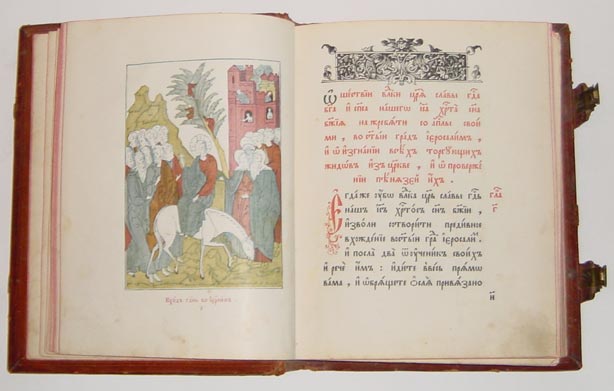 Входъ гднь во Іерлимъ
Ѡ шествїи влⷣки црѧ̀ славы гдⷭа
бга и спⷭа нашегѡ іс҃а хрⷭта сн҃а
бжїѧ на жребѧти со апⷭлы свои
ми , во ст҃ый градъ іерⷭалимъ ,
и ѡ изгнанїи всѣхъ торгующихъ
жидѡвъ изъ церкве , и ѡ проверже
нїи пѣнѧзей ихъ .
Егда же ᲂубѡ влⷣка црь славы гдⷭь
нашъ іс҃ъ хрⷭтосъ сн҃ъ бжїй ,
изволи сотворити предивное
вхожденїе во ст҃ый градъ іерⷭалимъ .
и посла два ѿ ᲂученикъ своихъ
и рече имъ : идите в весь прѧмѡ
вама , и ѡбрѧщете ѻслѧ привѧзано
гла҃
г҃
и